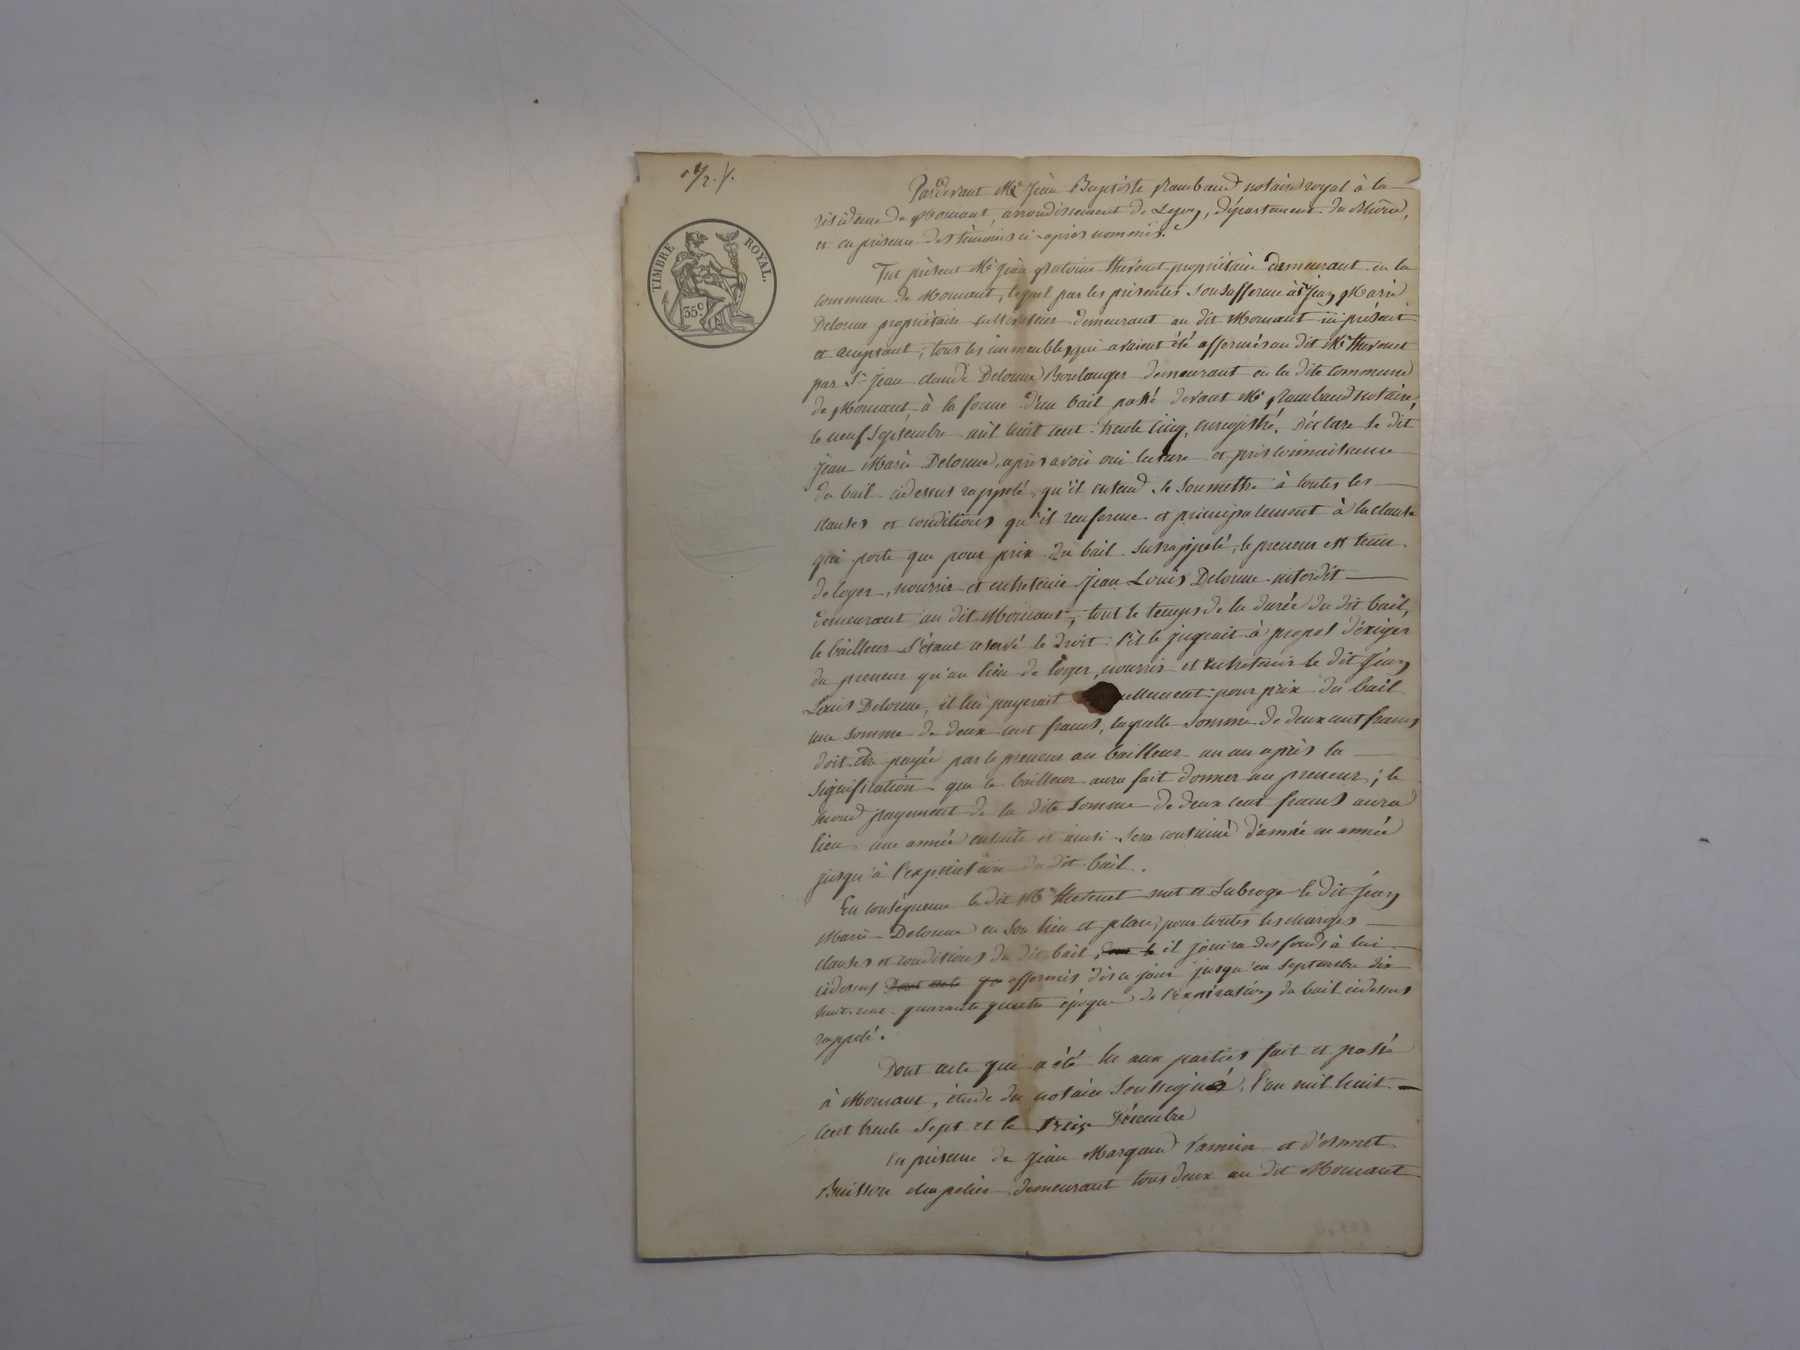 TIMBRE ROYAL.
35 c
Pardevant Me Jean Baptiste Rambaud notaire royal à la
résidence de Mornant, arrondissement de Lyon, département du Rhône,
et en présence des témoins ci-après nommés.
Fut présent Mr Jean Antoine thevenet propriétaire demeurant en la
commune de Mornant, lequel par les présentes Sousafferme à Sr Jean Marie
Delorme propriétaire cultivateur demeurant au dit Mornant ici présent
et acceptant, tous les immeubles qui avaient été affermés au dit Mr thevenet
par Sr Jean claude Delorme Boulanger demeurant en la dite Commune
de Mornant, à la forme d'un bail passé devant Me Rambaud notaire,
le neuf Septembre mil huit cent trente cinq, enregistré. Déclare le dit
Jean Marie Delorme, après avoir oui lecture et pris connaissance
du bail cidessus rappelé, qu'il entend se Soumettre à toutes les
clauses et conditions qu'il renferme et principalement à la clause
qui porte que pour prix du bail Susrappelé, le preneur est tenu
de loger, nourrir et entretenir Jean Louis Delorme interdit
demeurant au dit Mornant, tout le temps de la durée du dit bail,
le bailleur S'étant réservé le droit S'il le jugeait à propos d'exiger
du preneur qu'au lieu de loger, nourrir et entretenir le dit Jean
Louis Delorme, il lui payerait uellement pour prix du bail
une Somme de deux cent francs, laquelle Somme de deux cent francs
doit être payée par le preneur au bailleur un an après la
Signification que le bailleur aura fait donner au preneur; le
second payement de la dite Somme de deux cent francs aura
lieu une année ensuite et ainsi Sera continué d'année en année
jusqu'à l'expiration du dit bail.
En conséquence le dit Mr thevenet met et Subroge le dit Jean
Marie Delorme en Son lieu et place, pour toutes les charges
clauses et conditions du dit bail, dont le il jouira des fonds à lui
cidessus Dont acte affermés dès ce jour jusqu'en Septembre dix
huit cent quarante quatre époque de l'expiration du bail cidessus
rappelé.
Dont acte qui a été lu aux parties fait et passé
à Mornant, étude du notaire Soussigné, l'an mil huit
cent trente Sept et le treize Décembre
En présence de Jean Margand et d'
Buisson chapelier demeurant tous deux au dit Mornant